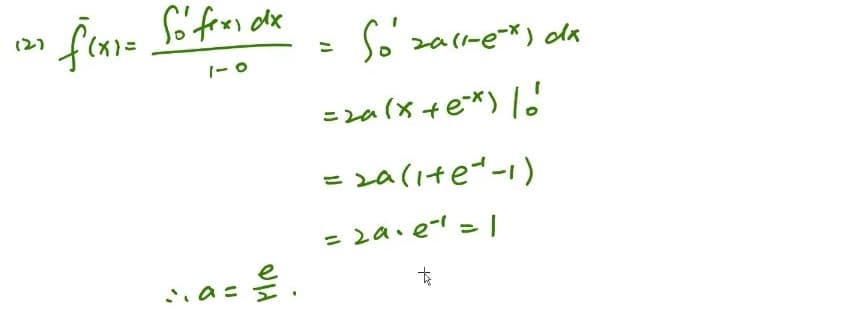 (2) f̄(x) = ∫₀¹ f(x) dx / 1-0 = ∫₀¹ 2a(1-e⁻ˣ) dx
= 2a(x + e⁻ˣ) |₀¹
= 2a(1 + e⁻¹ - 1)
= 2a · e⁻¹ = 1
∴ a = e/2 .